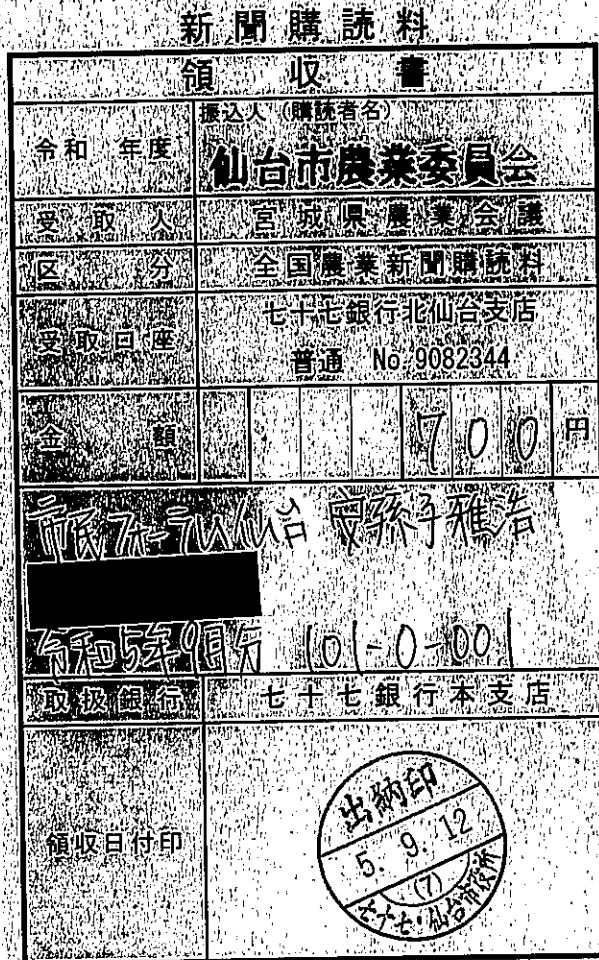 新聞購読料
領収書
令和 年度
振込人(購読者名)
仙台市農業委員会
受取人
宮城県農業会議
区分
全国農業新聞購読料
受取口座
七十七銀行北仙台支店
普通 No.9082344
金額
700円
市民フォーラム仙台 安孫子雅浩
令和5年9月分 101-0-001
取扱銀行
七十七銀行本支店
領収日付印
出納印
5. 9. 12
(7)
七十七・仙台市役所